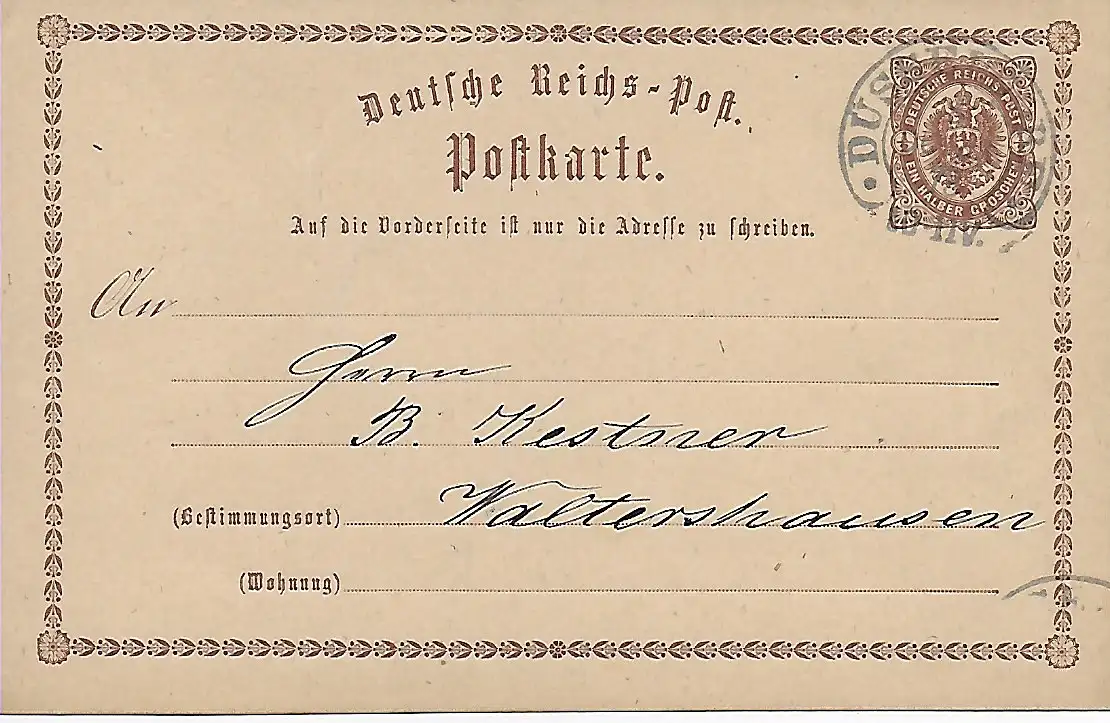 Deutsche Reichs-Post.
Postkarte.
Auf die Vorderseite ist nur die Adresse zu schreiben.
DEUTSCHE REICHS POST
EIN HALBER GROSCHEN
An
Herrn
B. Kestner
(Bestimmungsort) Waltershausen
(Wohnung)